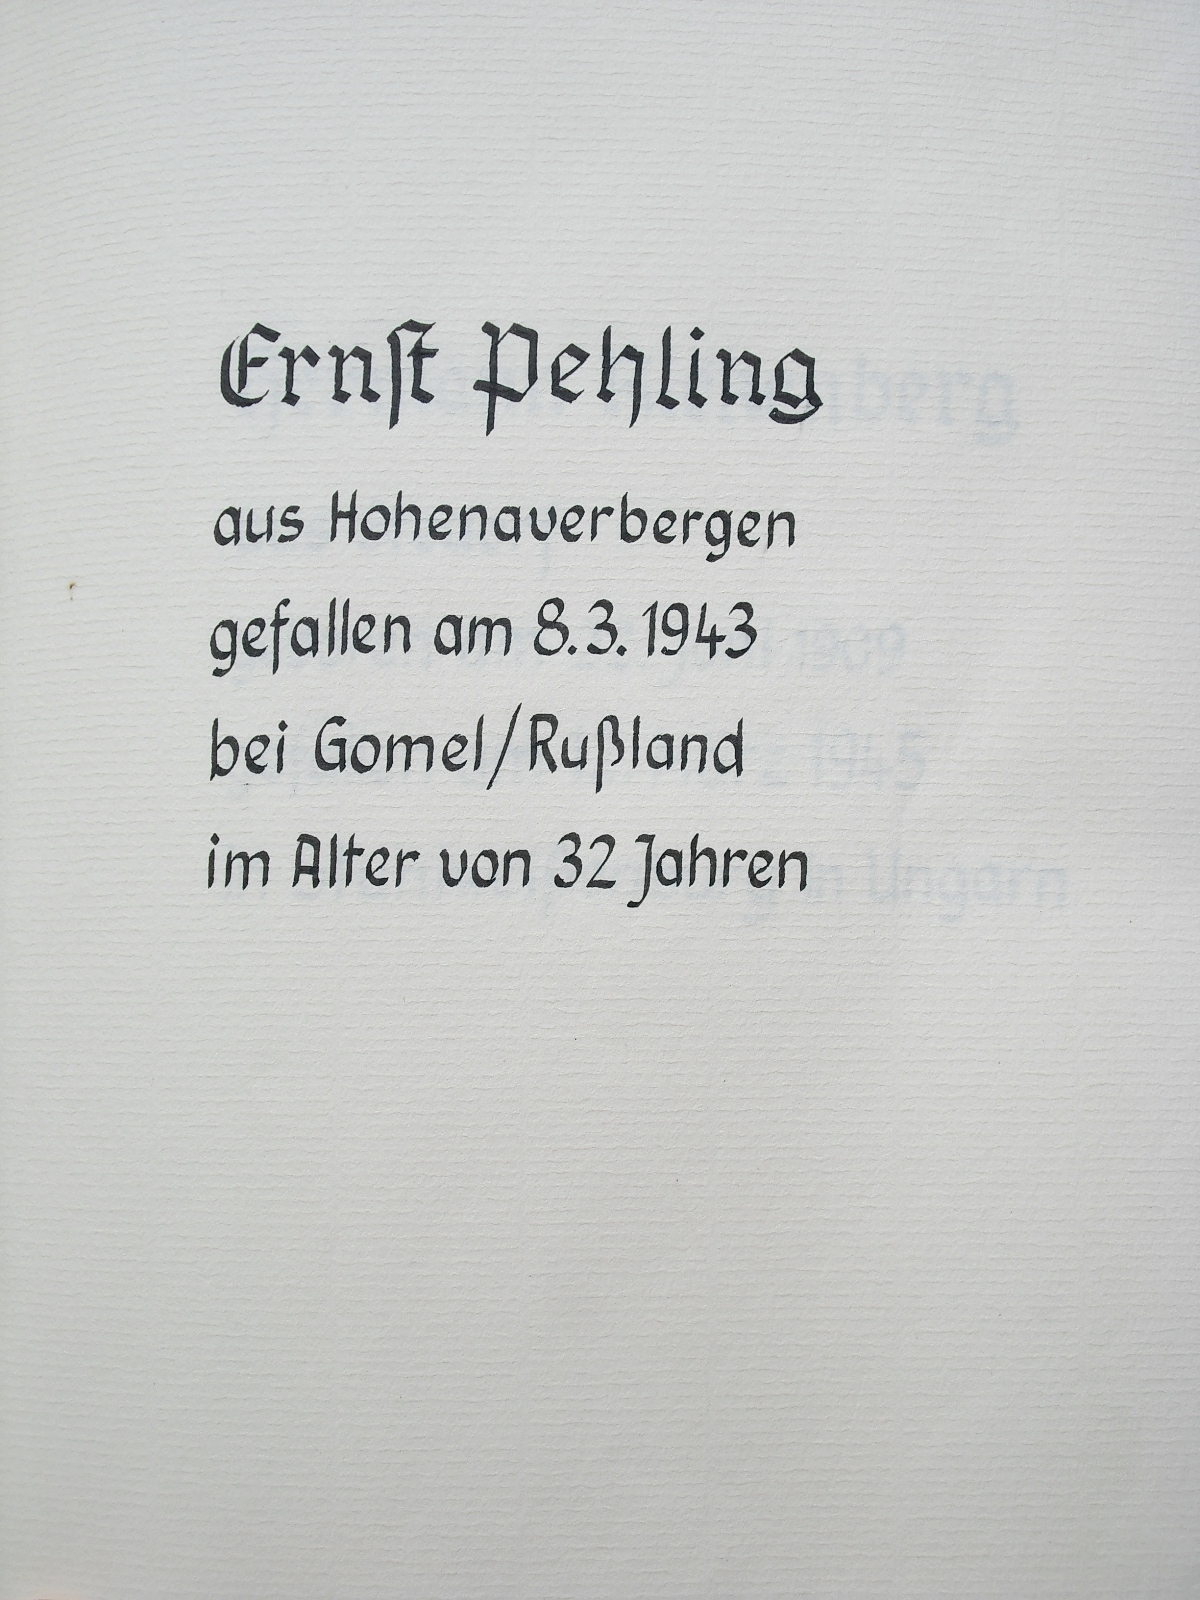 Ernst Pehling
aus Hohenaverbergen
gefallen am 8.3.1943
bei Gomel/Rußland
im Alter von 32 Jahren